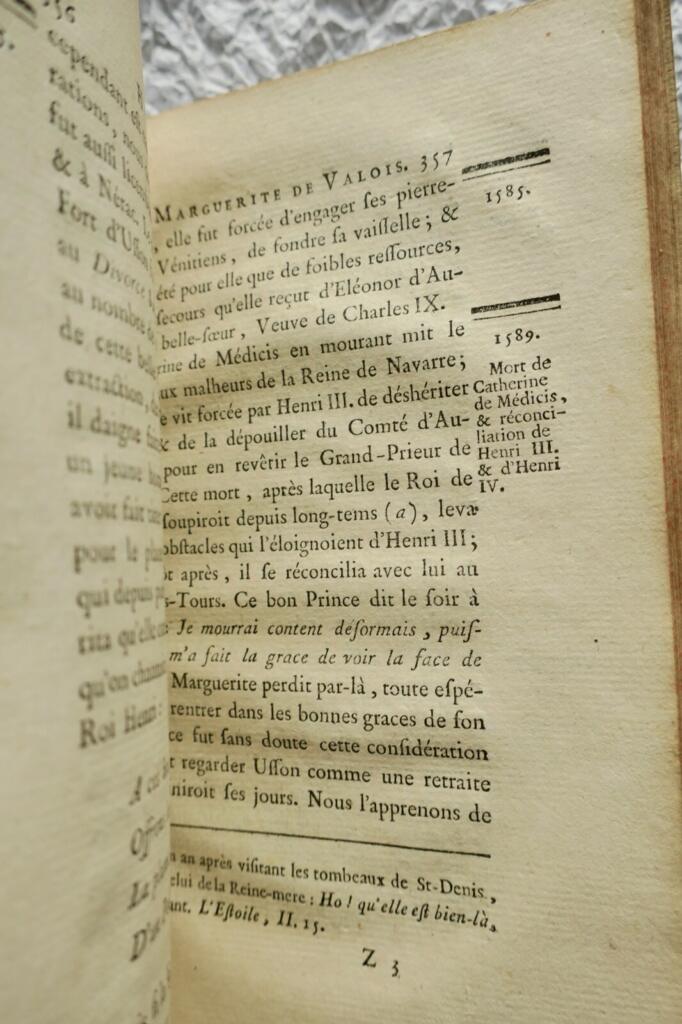 56
cependant
rations, nous
fut aussi
& à Nérac,
Fort d'Usson
au Divorce
au nombre
de cette
extraction,
il daigne
un jeune
avoit fait
pour le
qui depuis
rita qu'elle
qu'on
Roi Henri
MARGUERITE DE VALOIS. 357
, elle fut forcée d'engager ses pierre-
Vénitiens, de fondre sa vaisselle; &
été pour elle que de foibles ressources,
secours qu'elle reçut d'Eléonor d'Au-
belle-sœur, Veuve de Charles IX.
rine de Médicis en mourant mit le
ux malheurs de la Reine de Navarre;
e vit forcée par Henri III. de déshériter
& de la dépouiller du Comté d'Au-
pour en revêtir le Grand-Prieur de
Cette mort, après laquelle le Roi de
soupiroit depuis long-tems (a), leva
obstacles qui l'éloignoient d'Henri III;
t après, il se réconcilia avec lui au
s-Tours. Ce bon Prince dit le soir à
: Je mourrai content désormais, puis-
m'a fait la grace de voir la face de
Marguerite perdit par-là, toute espé-
rentrer dans les bonnes graces de son
ce fut sans doute cette considération
t regarder Usson comme une retraite
niroit ses jours. Nous l'apprenons de
1585.
1589.
Mort de
Catherine
de Médicis,
& réconci-
liation de
Henri III.
& d'Henri
IV.
n an après visitant les tombeaux de St-Denis,
elui de la Reine-mere: Ho! qu'elle est bien-là,
ant. L'Estoile, II. 15.
Z 3